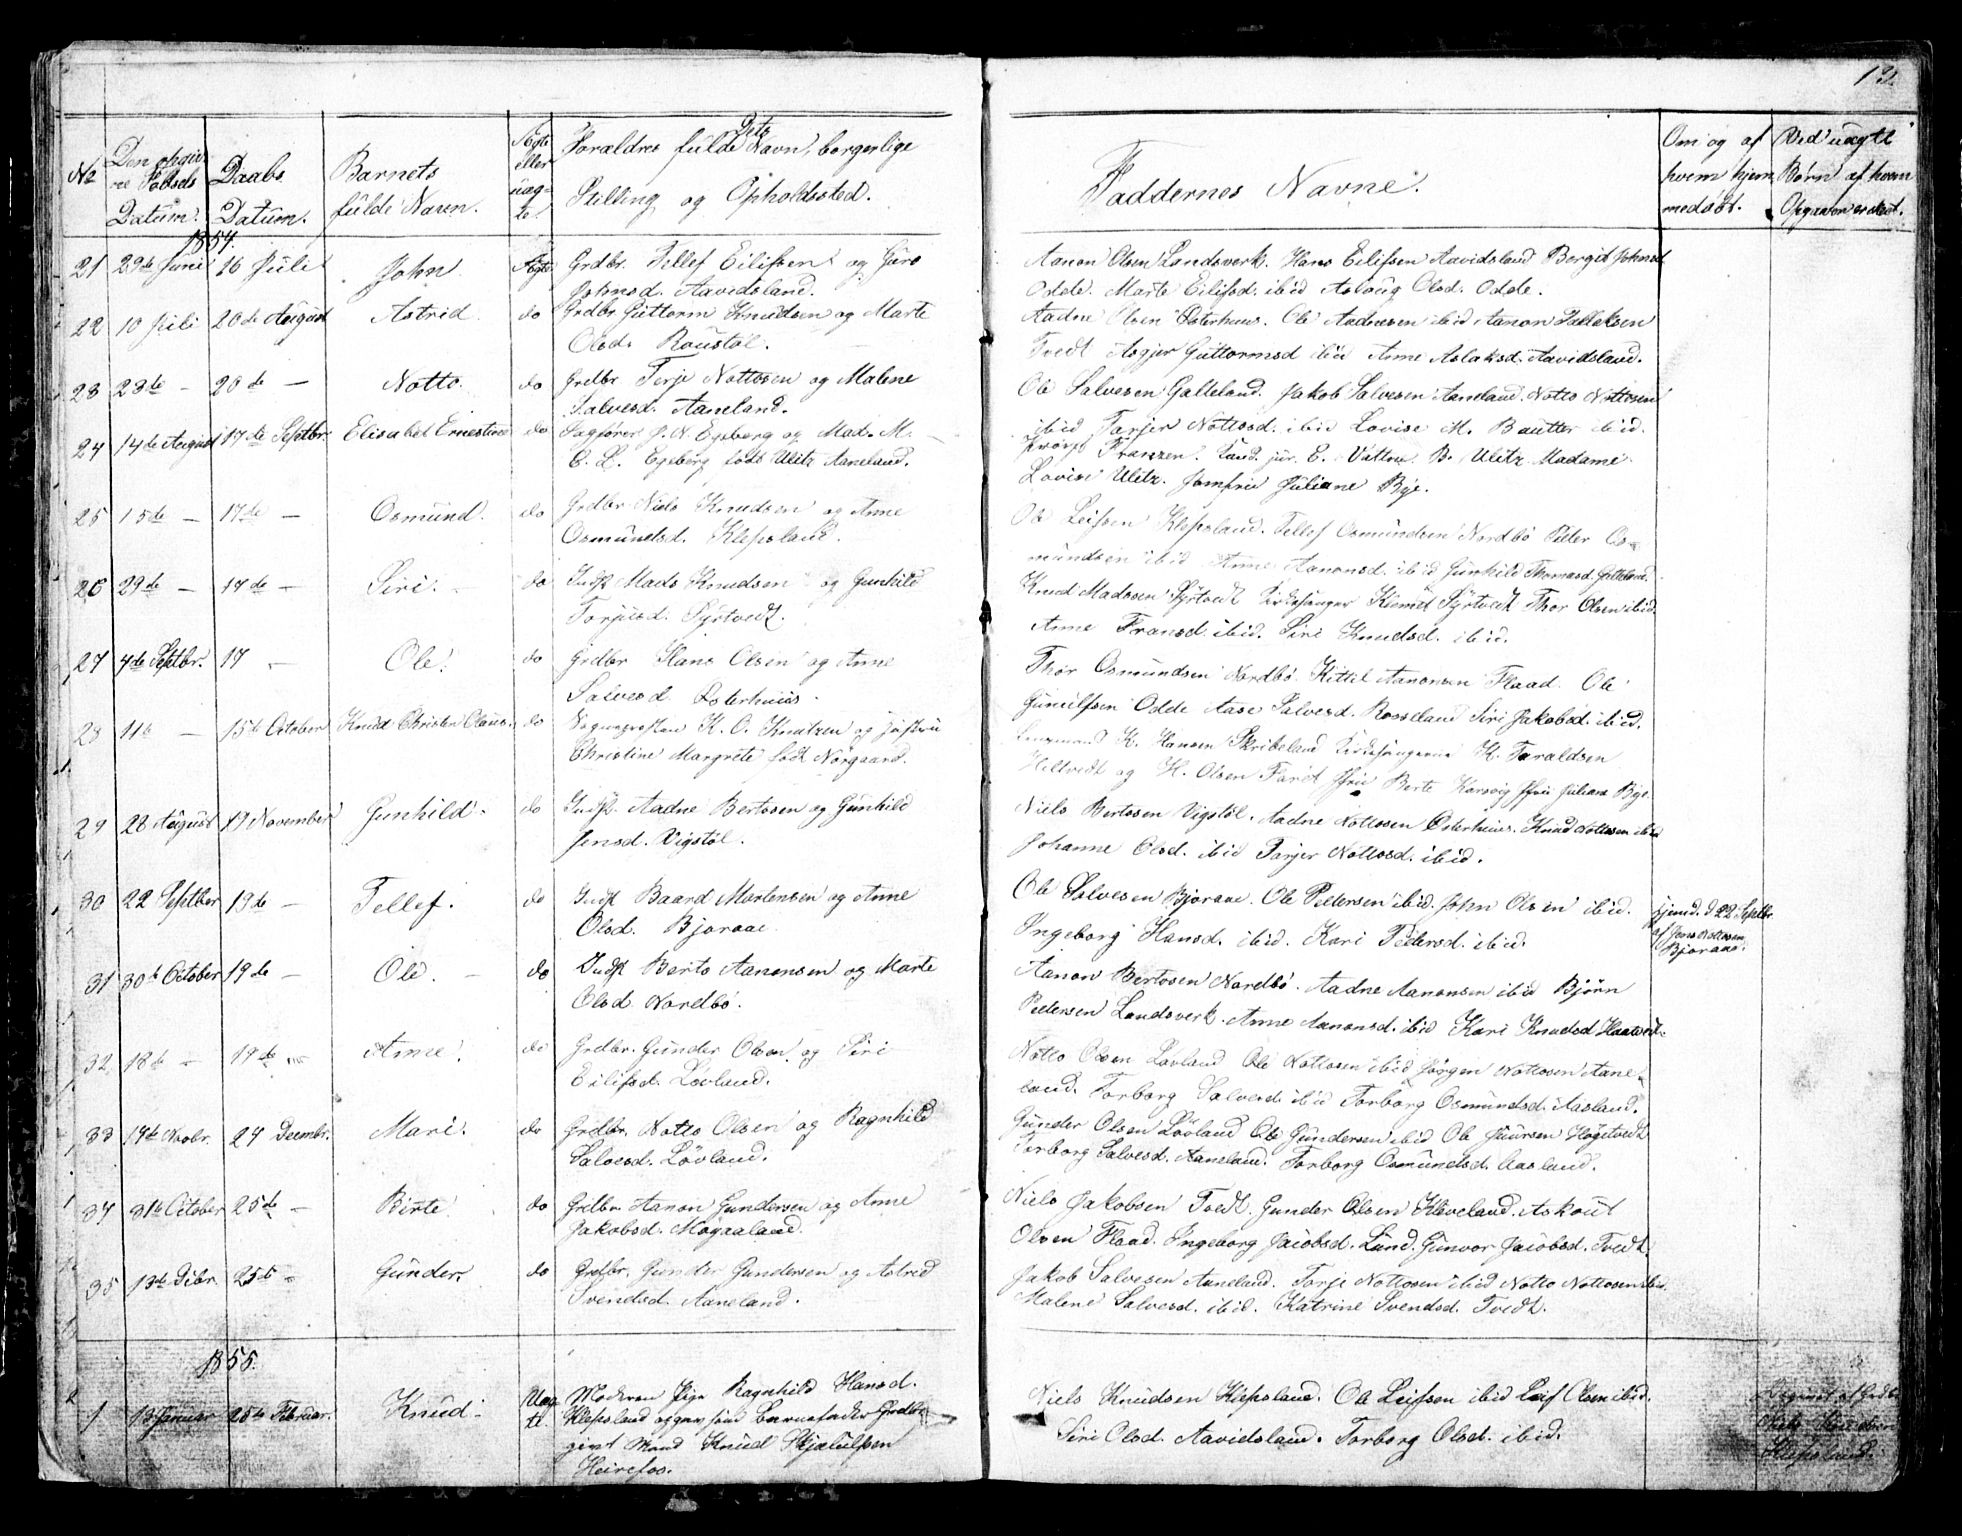 12.
No
Den opgiv
ne Födsels
Datum.
Daabs
Datum.
Barnets
fulde Navn.
Ægte
eller
uæg-
te.
Dets
Forældres fulde Navn, borgerlige
Stilling og Opholdssted.
Faddernes Navne.
Om og af
hvem hjem
medöbt.
Ved uægte
Börn af hvem
Opgaven er skeet.
1854.
21 29de Juni 16 Juli John Ægte Grdbr. Tellef Eilifsen og Guro
Johnsd. Aavidsland.
Aanon Olsen Landsverk. Hans Eilifsen Aavidsland Bergit Johnsd
Odde. Marte Eilifsd. ibid Aslaug Olsd. Odde.
22 10 Juli 20de August Astrid do Grdbr Guttorm Knudsen og Marte
Olsd. Roustöl.
Aadne Olsen Osterhuus. Ole Aadnesen ibid Aanon Tellefsen
Tvedt Asgjer Guttormsd ibid Anne Aslaksd. Aavidsland.
23 23de — 20de — Notto. do Grdbr Terje Nottosen og Malene
Salvesd. Aaneland.
Ole Salvesen Galteland. Jakob Salvesen Aaneland. Notto Nottosen
ibid Tarjer Nottosd. ibid Lovise M. Bautter ibid.
24 14de August 17de Septbr. Elisabet Ernestine do Sagförer J. N. Egeberg og Mad. M.
C. L. Egeberg födt Ulitz Aaneland.
Provst Franzen. Kand. jur. E. B. Ulitz Madame
Lovise Ulitz. Jomfru Juliane Bye.
25 15de — 17de — Osmund. do Grdbr Niels Knudsen og Anne
Osmundsd. Klepsland.
Ole Leifsen Klepsland. Tellef Osmundsen Nordbö Peder Os-
mundsen ibid Anne Aanonsd. ibid Gunhild Thomasd. Galteland.
26 29de — 17de — Siri. do Indst Mads Knudsen og Gunhild
Torjusd. Syrtvedt.
Knud Madssen Syrtvedt Kirkesanger Syrtvedt Thor Olsen ibid
Anne Fransd. ibid. Siri Knudsd. ibid.
27 4de Septbr. 17 — Ole. do Grdbr Hans Olsen og Anne
Salvesd Osterhuus.
Thor Osmundsen Nordbö. Kittil Aanonsen Flaad. Ole
Gunulfsen Odde Aase Salvesd. Rosseland Siri Jakobsd. ibid.
28 11te — 15de October Knud Christen Claus. do Sognepresten K. O. Knutzen og Hustru
Christine Margrete födt Nörgaard.
Lensmand K. Hansen Skribeland Kirkesangerne K. Taraldsen
Hiltvedt og H. Olsen Faret Berte Juliane Bye.
29 28 August 19 November Gunhild. do Indst. Aadne Bertosen og Gunhild
Jensd. Vigstöl.
Niels Bertosen Vigstöl. Aadne Nottosen Osterhuus. Knud Nottosen ibid
Johanne Olsd. ibid Tarjer Nottosd. ibid.
30 22 Septber 19de — Tellef. do Indst Baard Mortensen og Anne
Olsd. Bjoraae
Ole Salvesen Bjoraae. Ole Pedersen ibid. John Olsen ibid.
Ingeborg Hansd. ibid. Kari Pedersd. ibid.
hjemd. d 22 Septbr.
af Jens Nottosen
Bjoraae.
31 30te October 19de — Ole. do Indst Berto Aanonsen og Marte
Olsd Nordbö.
Aanon Bertosen Nordbö. Aadne Aanonsen ibid Björn
Pedersen Landsverk. Anne Aanonsd. ibid Kari Knudsd Haatvedt.
32 18de — 19de — Anne. do Grdbr. Gunder Olsen og Siri
Eilifsd. Lövland.
Notto Olsen Lövland Ole Nottosen ibid Jörgen Nottosen Aane-
land. Torborg Salvesd. ibid Torborg Osmundsd. Aasland.
33 19de Novbr. 24 Decembr. Mari. do Grdbr. Notto Olsen og Ragnhild
Salvesd. Lövland.
Gunder Olsen Lövland Ole Gundersen ibid Ole Högetvedt
Torborg Salvesd. Aaneland. Torborg Osmundsd. Aasland.
34 31te October 25de — Birte. do Grdbr. Aanon Gundersen og Anne
Jakobsd. Mögaaland.
Niels Jakobsen Tvedt. Gunder Olsen Kleveland. Askout
Olsen Flaad. Ingeborg Jacobsd. Lund. Gunvor Jacobsd. Tvedt.
35 13de Dcbr. 25de — Gunder. do Grdbr. Gunder Gundersen og Astrid
Svendsd. Aaneland.
Jakob Salvesen Aaneland. Terje Nottosen ibid Notto Nottosen ibid.
Malene Salvesd. ibid. Katrine Svendsd. Tvedt.
1855.
1 13 Januar 25de Februar. Knud. Uæg-
te. Moderen Pige Ragnhild Hansd.
Klepsland opgav som Barnefader Grdbr
givt Mand Knud Skjalulfsen
Heirefos.
Niels Knudsen Klepsland. Ole Leifsen ibid Leif Olsen ibid.
Siri Olsd. Aavidsland. Torborg Olsd. ibid.
af Grdbr
Niels Knudsen
Klepsland.